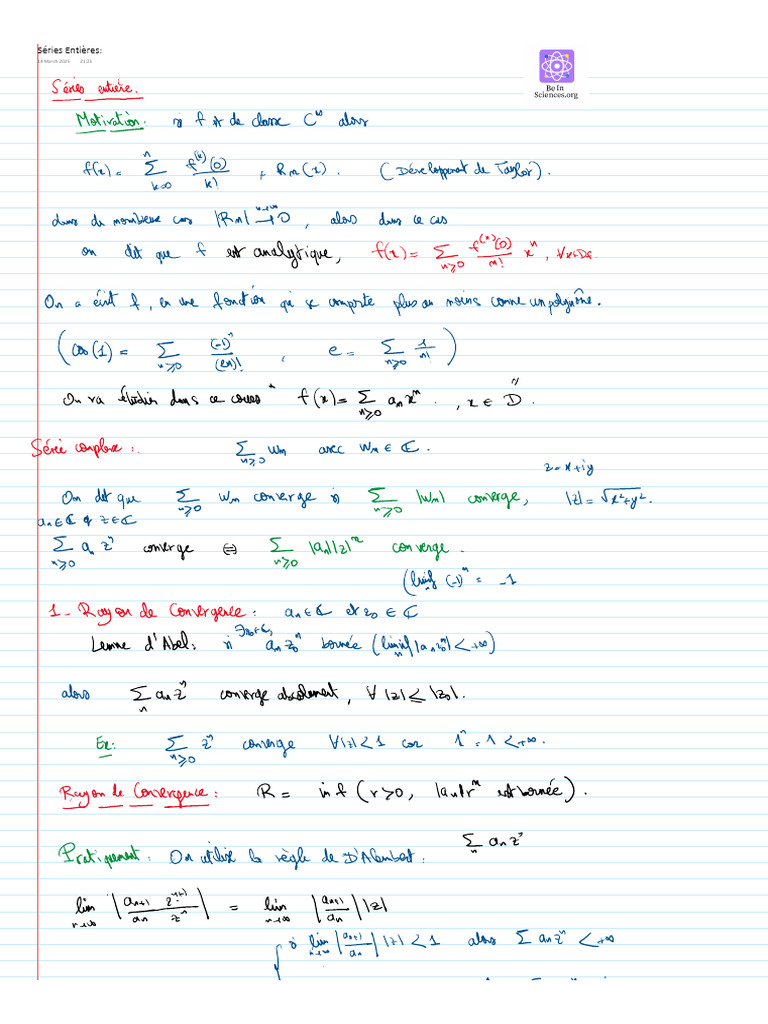 Séries Entières:
14 March 2021 21:21
Be In
Sciences.org
Séries entière.
Motivation: si f est de classe C^∞ alors
f(x) = ∑_{k=0}^{n} f^{(k)}(0)/k! + R_n(x). (Développement de Taylor).
dans de nombreux cas |R_n| →_{n→+∞} 0, alors dans ce cas
on dit que f est analytique, f(x) = ∑_{n≥0} f^{(n)}(0)/n! x^n, ∀x∈D_f.
On a écrit f, en une fonction qui se comporte plus ou moins comme un polynôme.
(cos(1) = ∑_{n≥0} (-1)^n/(2n)! , e = ∑_{n≥0} 1/n!)
On va étudier dans ce cours " f(x) = ∑_{n≥0} a_n x^n. , x ∈ D ".
Série complexe: ∑_{n≥0} w_n avec w_n ∈ ℂ.
z = x+iy
On dit que ∑_{n≥0} w_n converge si ∑_{n≥0} |w_n| converge, |z| = √(x²+y²).
a_n ∈ ℂ & z ∈ ℂ
∑_{n≥0} a_n z^n converge ⇔ ∑_{n≥0} |a_n||z|^n converge.
(liminf (-1)^n = -1
1 - Rayon de Convergence: a_n ∈ ℂ et z_0 ∈ ℂ
Lemme d'Abel: si ∃z_0∈ℂ, a_n z_0^n bornée (limsup_n |a_n z_0^n| < +∞)
alors ∑_n a_n z^n converge absolument, ∀ |z| ≤ |z_0|.
Ex: ∑_{n≥0} z^n converge ∀|z|<1 car 1^n = 1 < +∞.
Rayon de Convergence: R = inf (r>0, |a_n|r^n est bornée).
∑_n a_n z^n
Pratiquement: On utilise la règle de D'Alembert.
lim_{n→∞} |a_{n+1} z^{n+1} / a_n z^n| = lim_{n→∞} |a_{n+1}/a_n| |z|
si lim_{n→∞} |a_{n+1}/a_n| |z| < 1 alors ∑ a_n z^n < +∞